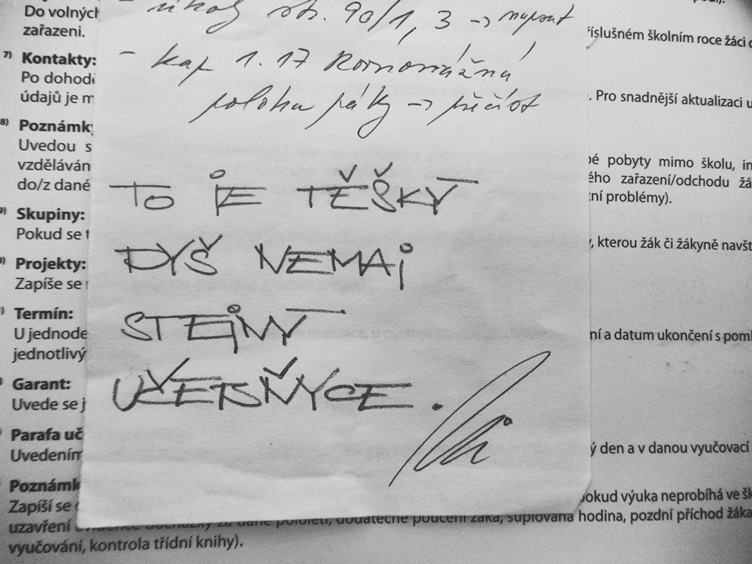 Do volných
zařazeni.
říslušném školním roce žáci
7) Kontakty:
Po dohodě
údajů je m
. Pro snadnější aktualizaci u
8) Poznámky
Uvedou s
vzděláván
do/z dané
é pobyty mimo školu, in
ého zařazení/odchodu žá
tní problémy).
Skupiny:
Pokud se
, kterou žák či žákyně navšt
Projekty:
Zapíše se
Termín:
U jednode
jednotlivý
ní a datum ukončení s pom
Garant:
Uvede se j
Parafa uč
Uvedením
ý den a v danou vyučovací
Poznámk
Zapíší se
pokud výuka neprobíhá ve šk
uzavření
za dané pololetí, dodatečné poučení žáka, suplovaná hodina, pozdní příchod žáka
vyučování, kontrola třídní knihy).
str. 90/1, 3 → napsat
- kap 1.17 Rovnovážná
poloha páky → přečíst
TO JE TĚŠKÝ
DYŠ NEMAJ
STEJNÝ
UČEBŇYCE.